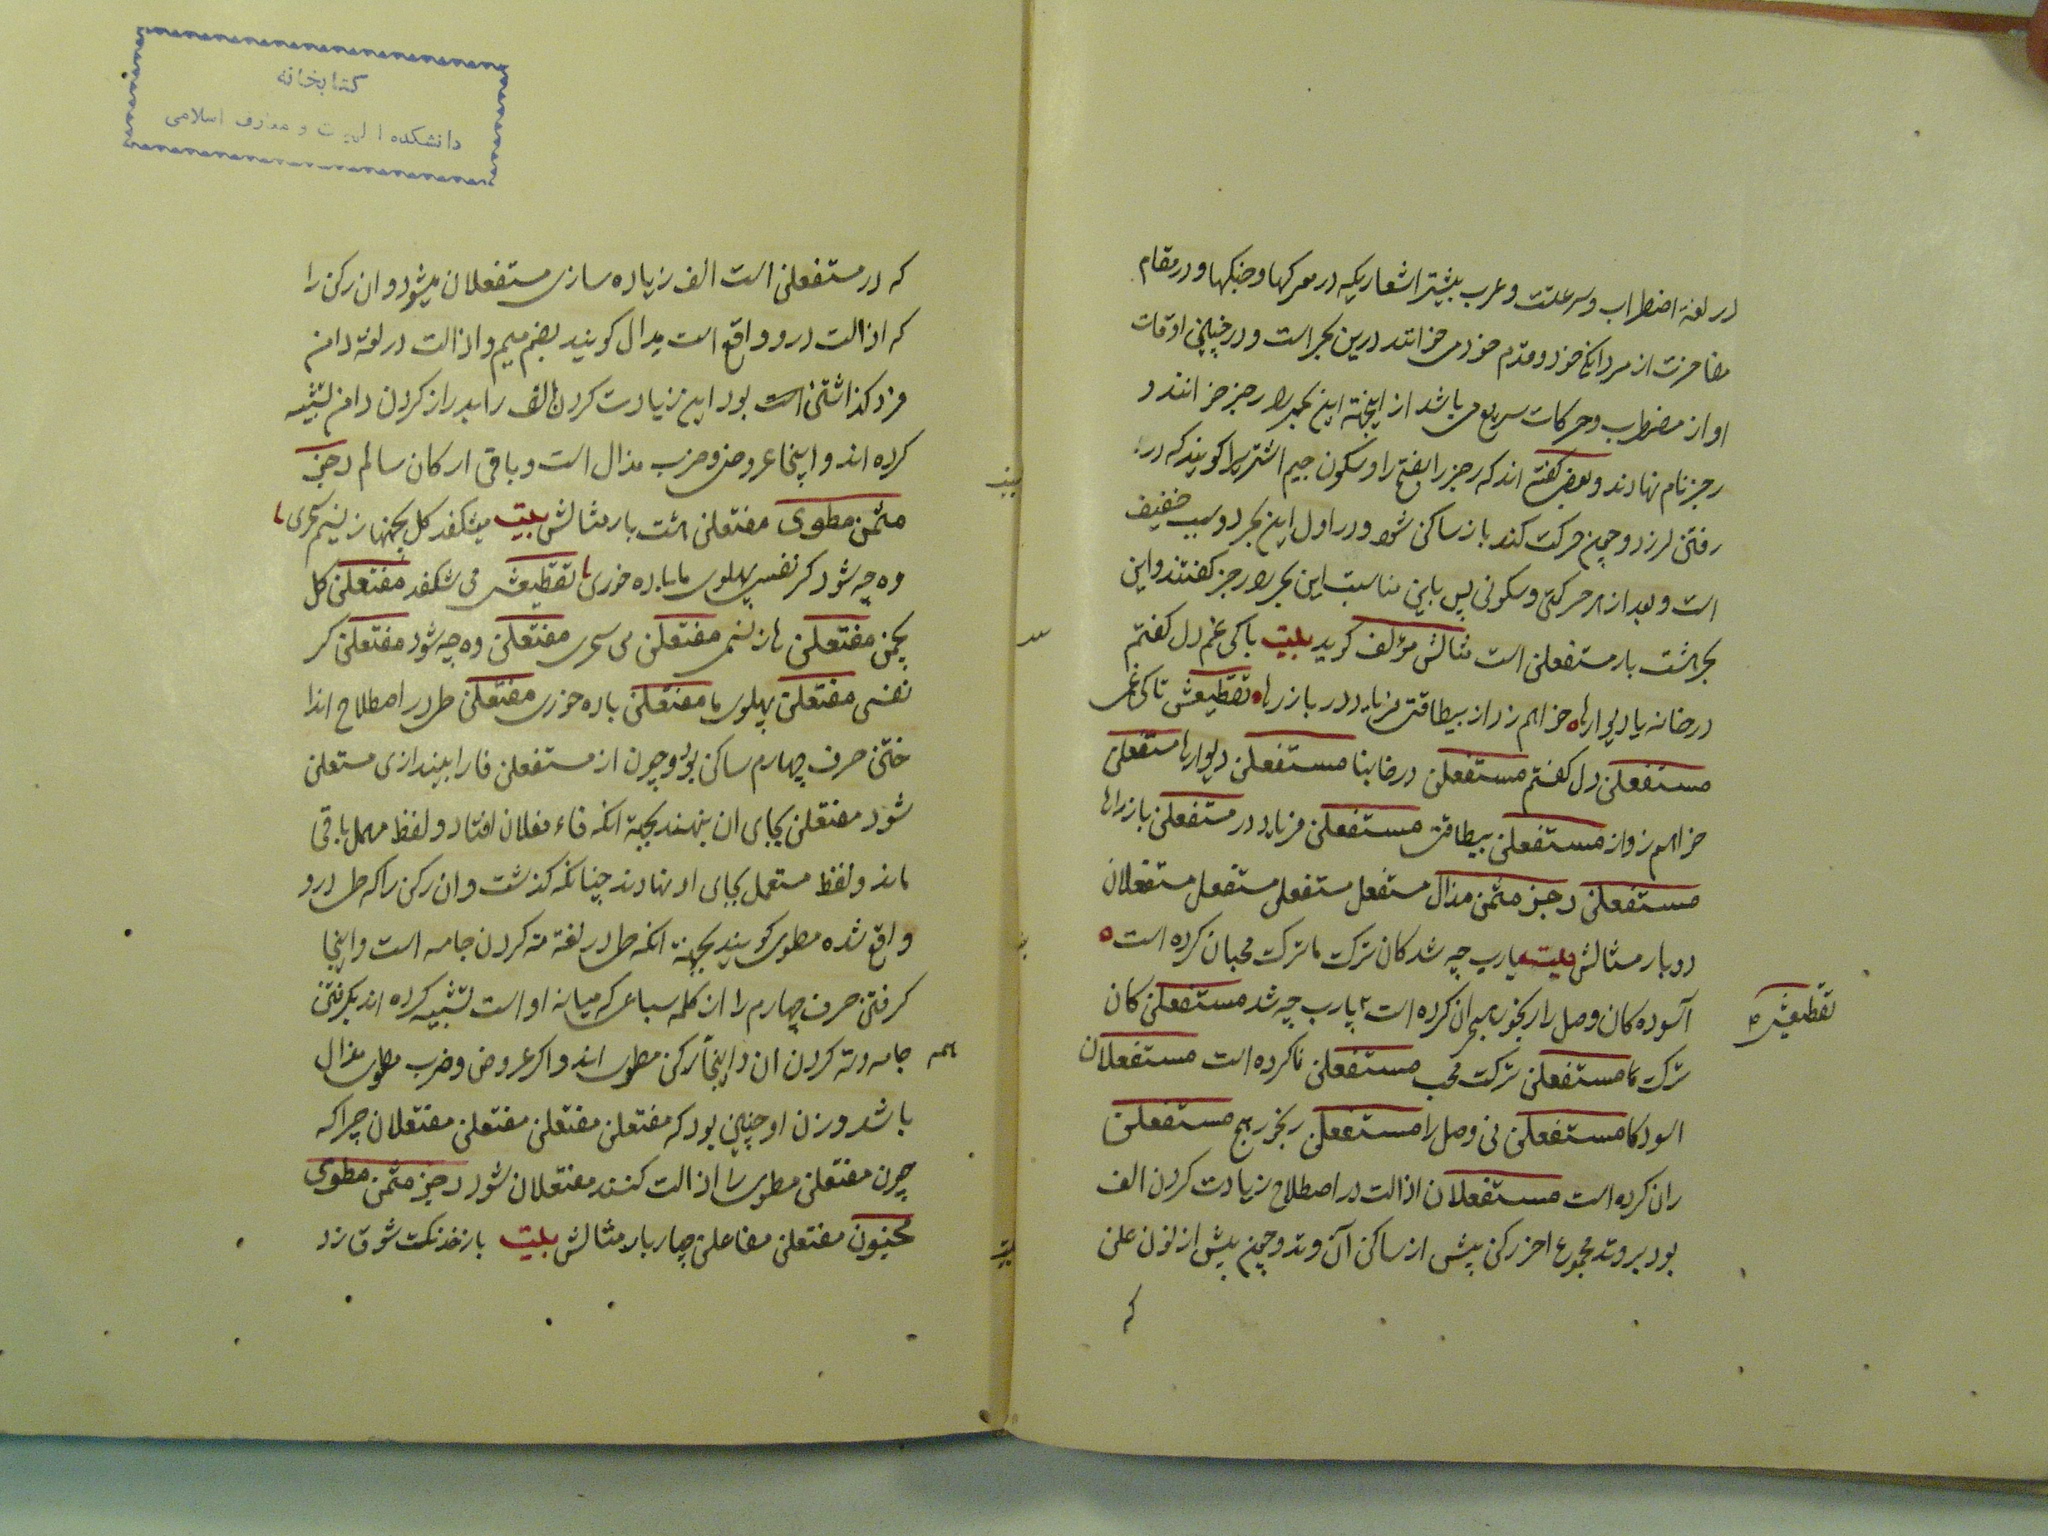 در لغة اضطراب و سرعتت و عرب بیشتر اشعاریکه در معرکها و جنکها و در مقام
مفاخرت از مردانکی خود و قدم خود می خوانند درین بحر است و در چنین اوقات
اواز مضطرب و حرکات سریع می باشد از اینجهته این بحر را رجز خوانند و
رجز نام نهادند و بعض کفته اند که رجز را بفتح را و سکون جیم اشتریرا کویند که در
رفتن لرزد و چون حرکت کند باز ساکن شود و در اول این بحر دو سبب خفیف
است و بعد از هر حرکتی و سکونی پس باین مناسبت این بحر را رجز کفتند و این
بحر هشت بار مستفعلن است مثالش مؤلف کوید بیت تا کی غم دل کفتم
در خانه با دیوارها خواهم زد از بیطاقتی فریاد در بازارها تقطیعش تا کی غم
مستفعلن دل کفتم مستفعلن در خانبا مستفعلن دیوارها مستفعلن
خواهم زداز مستفعلن بیطاقتی مستفعلن فریاد در مستفعلن بازارها
مستفعلن رجز مثمن مذال مستفعل مستفعلن مستفعل مستفعلان
دو بار مثالش بیت یا رب چه شد کان ترک ما ترک محبان کرده است
آسوده کان وصل را رنجور هجران کرده است یا رب چه شد مستفعلن کان
تقطیعش
ترک ما مستفعلن ترکت محب مستفعلن نا کرده است مستفعلان
اسود کا مستفعلن نی وصل را مستفعلن رنجور هج مستفعلن
ران کرده است مستفعلان اذالت در اصطلاح زیادت کردن الف
بود بر وتد مجموع اخر رکن پیش از ساکن آن وتد و چون پیش از نون علن
که
کتابخانه
دانشکده الهیات و معارف اسلامی
که در مستفعلن است الف زیاده سازی مستفعلان میشود و ان رکن را
که اذالت درو واقع است مذال کویند بضم میم و اذالت در لغة دامن
فرو کذاشتن است بود این زیادت کردن الف را بدراز کردن دامن تشبیه
کرده اند و اینجا عروض و ضرب مذال است و باقی ارکان سالم رجز
مثمن مطوی مفتعلن هشت بار مثالش بیت میشکفد کل بچمنها ز نسیم سحری
وه چه شود کر نفسی پهلوی ما باده خوری تقطیعش می شکفد مفتعلن کل
بچمن مفتعلن ها ز نسی مفتعلن می سحری مفتعلن وه چه شود مفتعلن کر
نفسی مفتعلن پهلوی ما مفتعلن باده خوری مفتعلن طی در اصطلاح اندا
ختن حرف چهارم ساکن بود و چون از مستفعلن فا را بیندازی مستعلن
شود مفتعلن بجای ان بنهند بجهة انکه فاء مفعلان افتاد و لفظ مهمل باقی
ماند و لفظ مستعمل بجای او نهادند چنانکه کذشت و ان رکن را که طی درو
واقع شده مطوی کویند بجهة انکه طی در لغة ته کردن جامه است و اینجا
کرفتن حرف چهارم را از کلمه سباعی که میانه او است تشبیه کرده اند بکرفتن
جامه و ته کردن ان و اینجا رکن مطوی اند و اکر عروض و ضرب مطوی مذال
باشد وزن او چنین بود که مفتعلن مفتعلن مفتعلن مفتعلان چرا که
چون مفتعلن مطوی را اذالت کنند مفتعلان شود رجز مثمن مطوی
مخبون مفتعلن مفاعلن چهار بار مثالش بیت باز خدنکت شوق زد